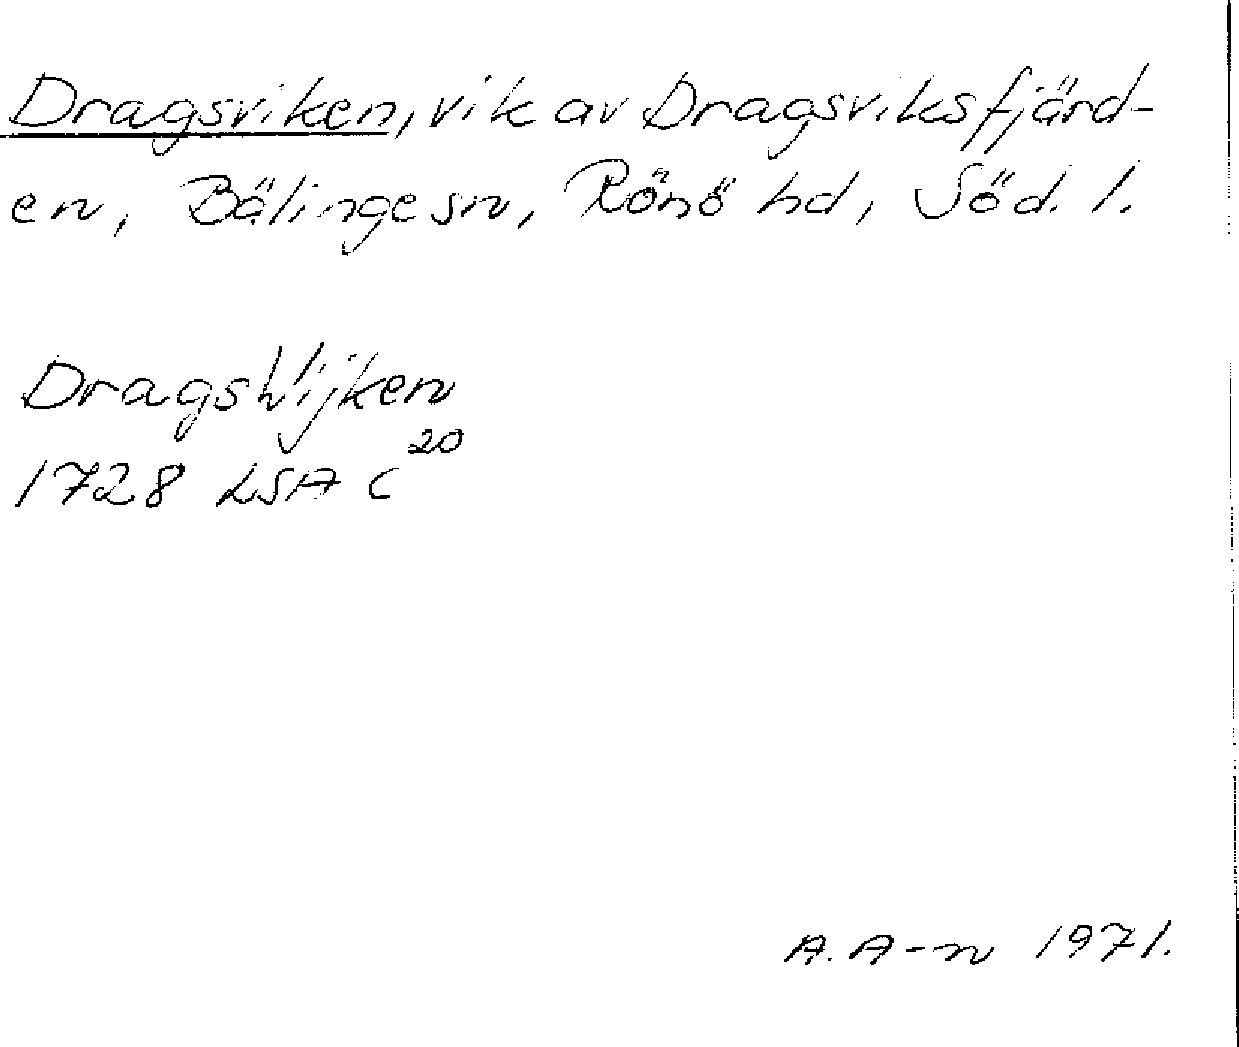 Dragsviken, vik av Dragsviksfjärd-
en, Bälinge sn, Rönö hd, Söd. l.
DragsWijken
1728 LSA C 20
A. A-n 1971.